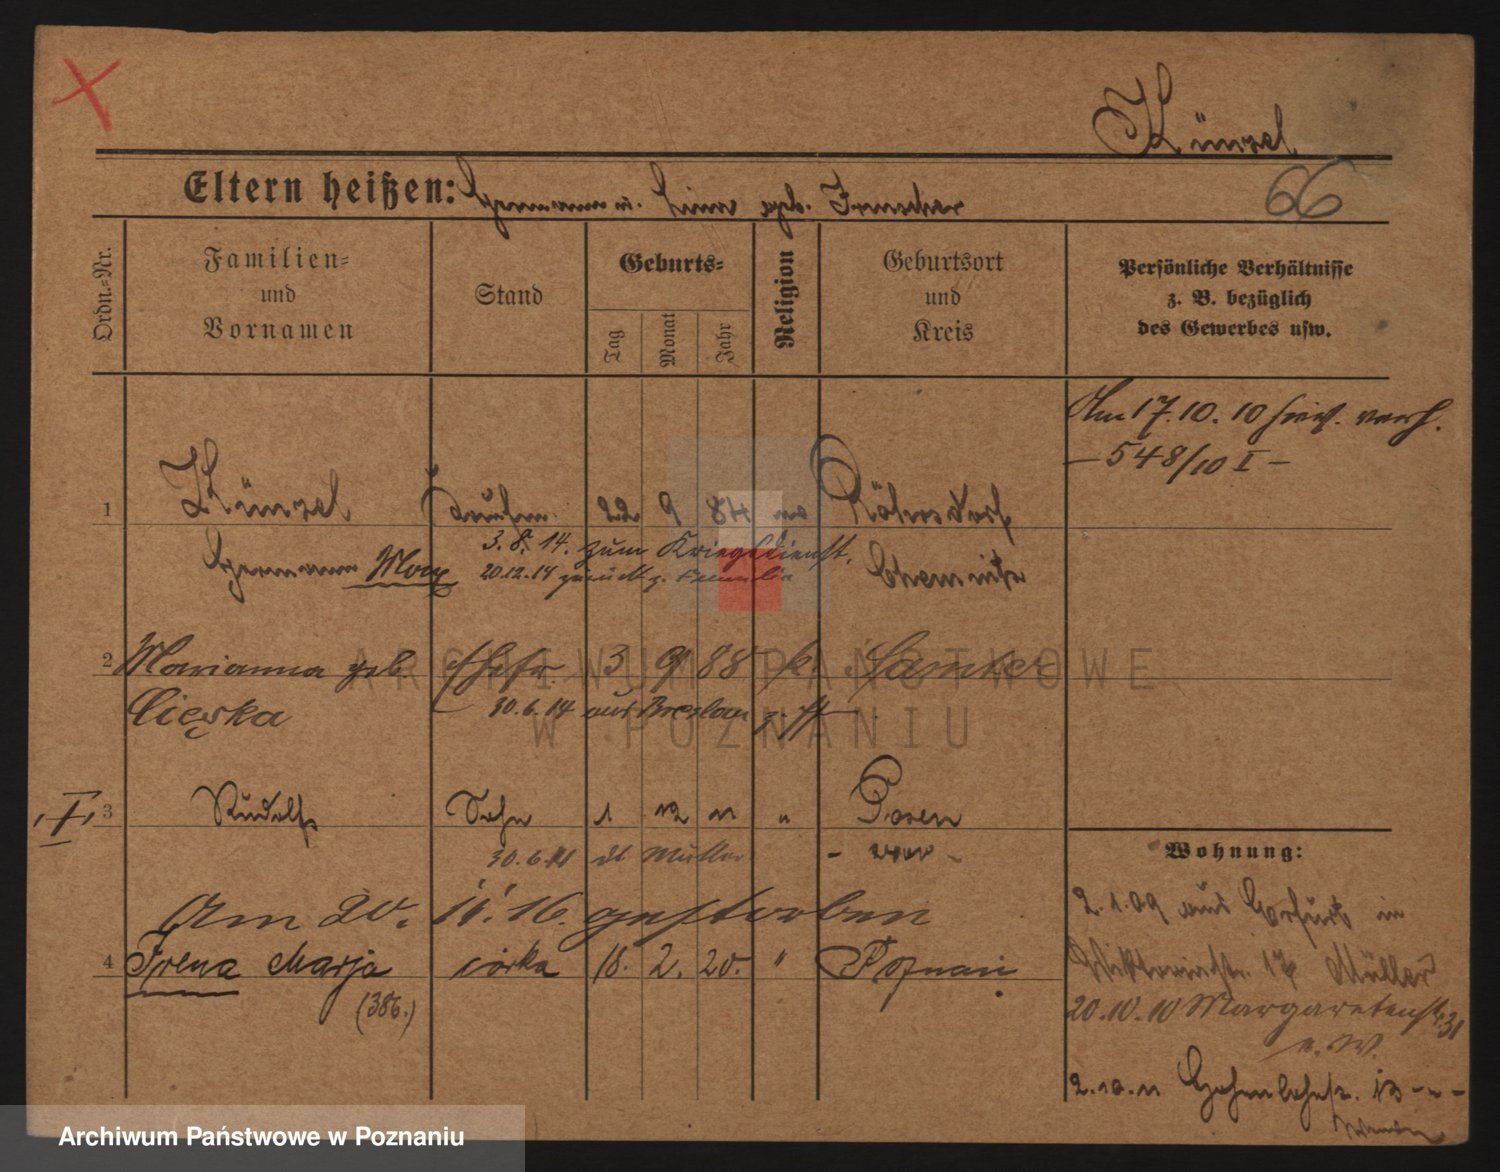 Künzel
66
Eltern heißen: Hermann u. geb.
Ordn.-Nr.
Familien-
und
Vornamen
Stand
Geburts-
Tag
Monat
Jahr
Religion
Geburtsort
und
Kreis
Persönliche Verhältnisse
z. B. bezüglich
des Gewerbes usw.
Am 17.10.10 verh.
– 548/10 I –
1 Künzel 22 9 84 ev Röhrsdorf
3.8.14. zum Kriegsdienst.
Hermann Max Chemnitz
20.12.14 zurück z. Familie
2 Marianna geb. Ehefr. 3 9 88 k. Samter
Ciężka 30.6.14 aus Breslau
I 3 Rudolf Sohn 1 12 11 " Posen
30.6.14 Müller
Wohnung:
Am 20. 11. 16. gestorben
2.1.09 aus Erfurt in
4 Irena Marja córka 18. 2. 20. " Poznań
17 Müller
(386.)
20.10.10 Margaretenstr. 31
n. W.
2.10.11 Hohenlohestr. 13
ARCHIWUM PAŃSTWOWE
W POZNANIU
Archiwum Państwowe w Poznaniu